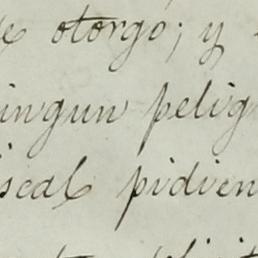 otorgo; y
ingun pelig
iscal pidien